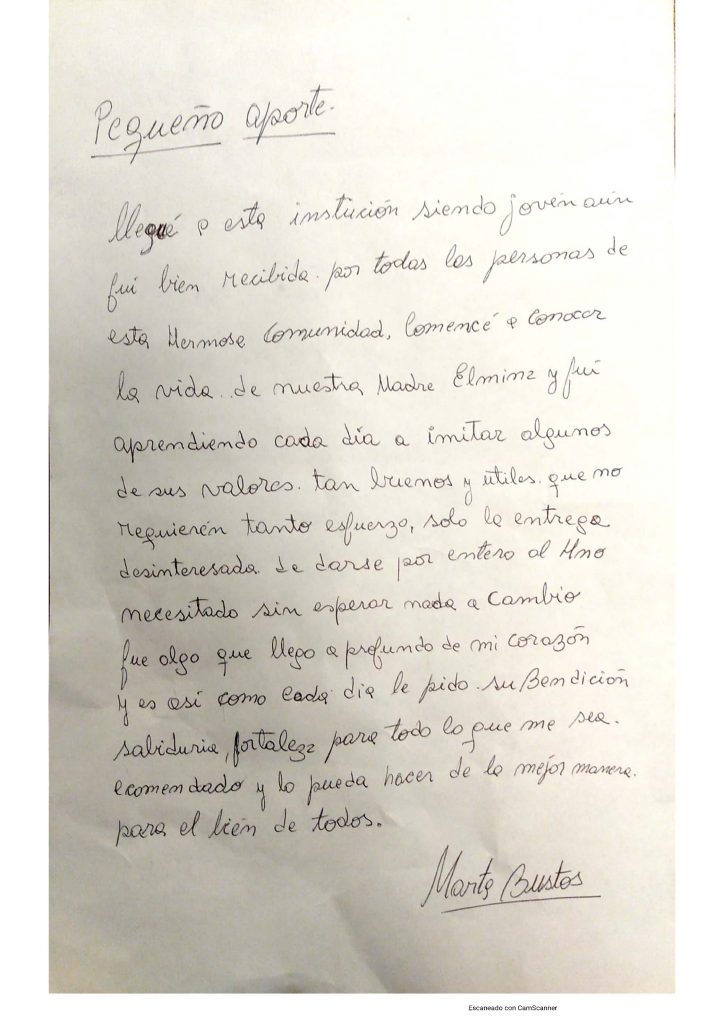 Pequeño aporte.
llegué a esta instución siendo jovén aún
fui bien recibida. por todas las personas de
esta Hermosa Comunidad, Comencé a conocer
la vida. de nuestra Madre Elmina y fuí
aprendiendo cada día a imitar algunos
de sus valores. tan buenos y utiles. que no
requierén tanto esfuerzo, solo la entrega
desinteresada. de darse por entero al Hno
necesitado sin esperar nada a Cambio
fue algo que llego a profundo de mi corazón
y es así como cada día le pido. su Bendición
sabiduria, fortaleza para todo lo que me sea.
ecomendado y lo pueda hacer de la mejor manera.
para el bién de todos.
Marta Bustos
Escaneado con CamScanner